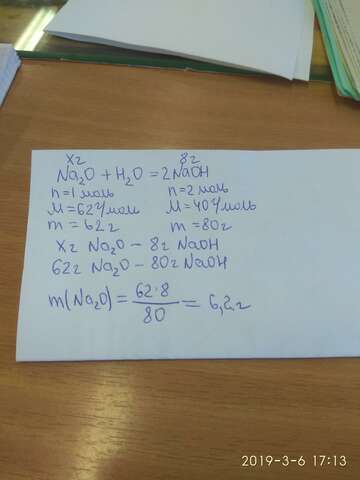 xг 8г
Na₂O + H₂O = 2NaOH
n=1 моль n=2 моль
M=62 г/моль M=40 г/моль
m=62г m=80г
xг Na₂O – 8г NaOH
62г Na₂O – 80г NaOH
m(Na₂O) = 62·8/80 = 6,2г
2019-3-6 17:13